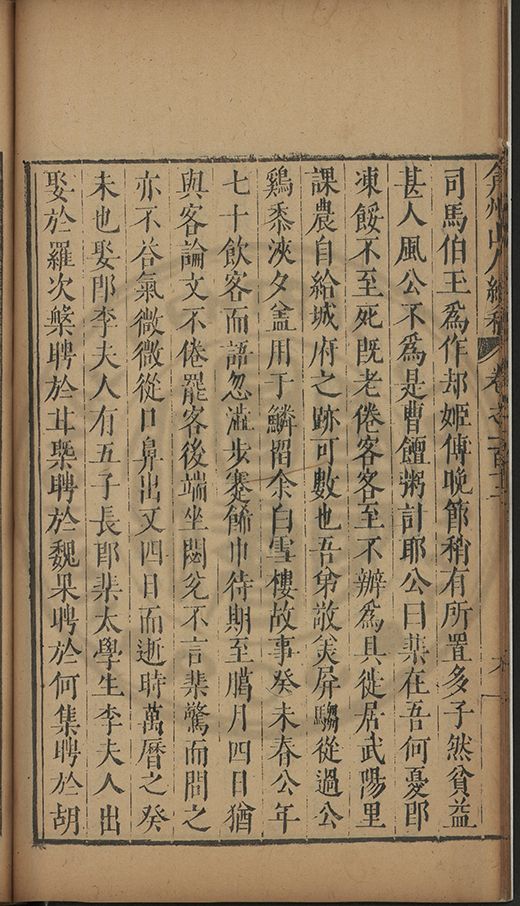 弇州山人續稿 卷之一百十二
司馬伯玉爲作却姬傳晚節稍有所置多子然貧益
甚人風公不爲是曹饘粥計耶公曰棐在吾何憂卽
凍餒不至死既老倦客客至不辦爲具徙居武陽里
課農自給城府之跡可數也吾弟敬美屏騶從過公
鷄黍浹夕盖用于鱗留余白雪樓故事癸未春公年
七十飲客而語忽澁步蹇飾巾待期至臈月四日猶
與客論文不倦罷客後端坐閉兊不言棐驚而問之
亦不荅氣微微從口鼻出又四日而逝時萬曆之癸
未也娶卽李夫人有五子長卽棐太學生李夫人出
娶於羅次槃聘於甘槩聘於魏果聘於何集聘於胡